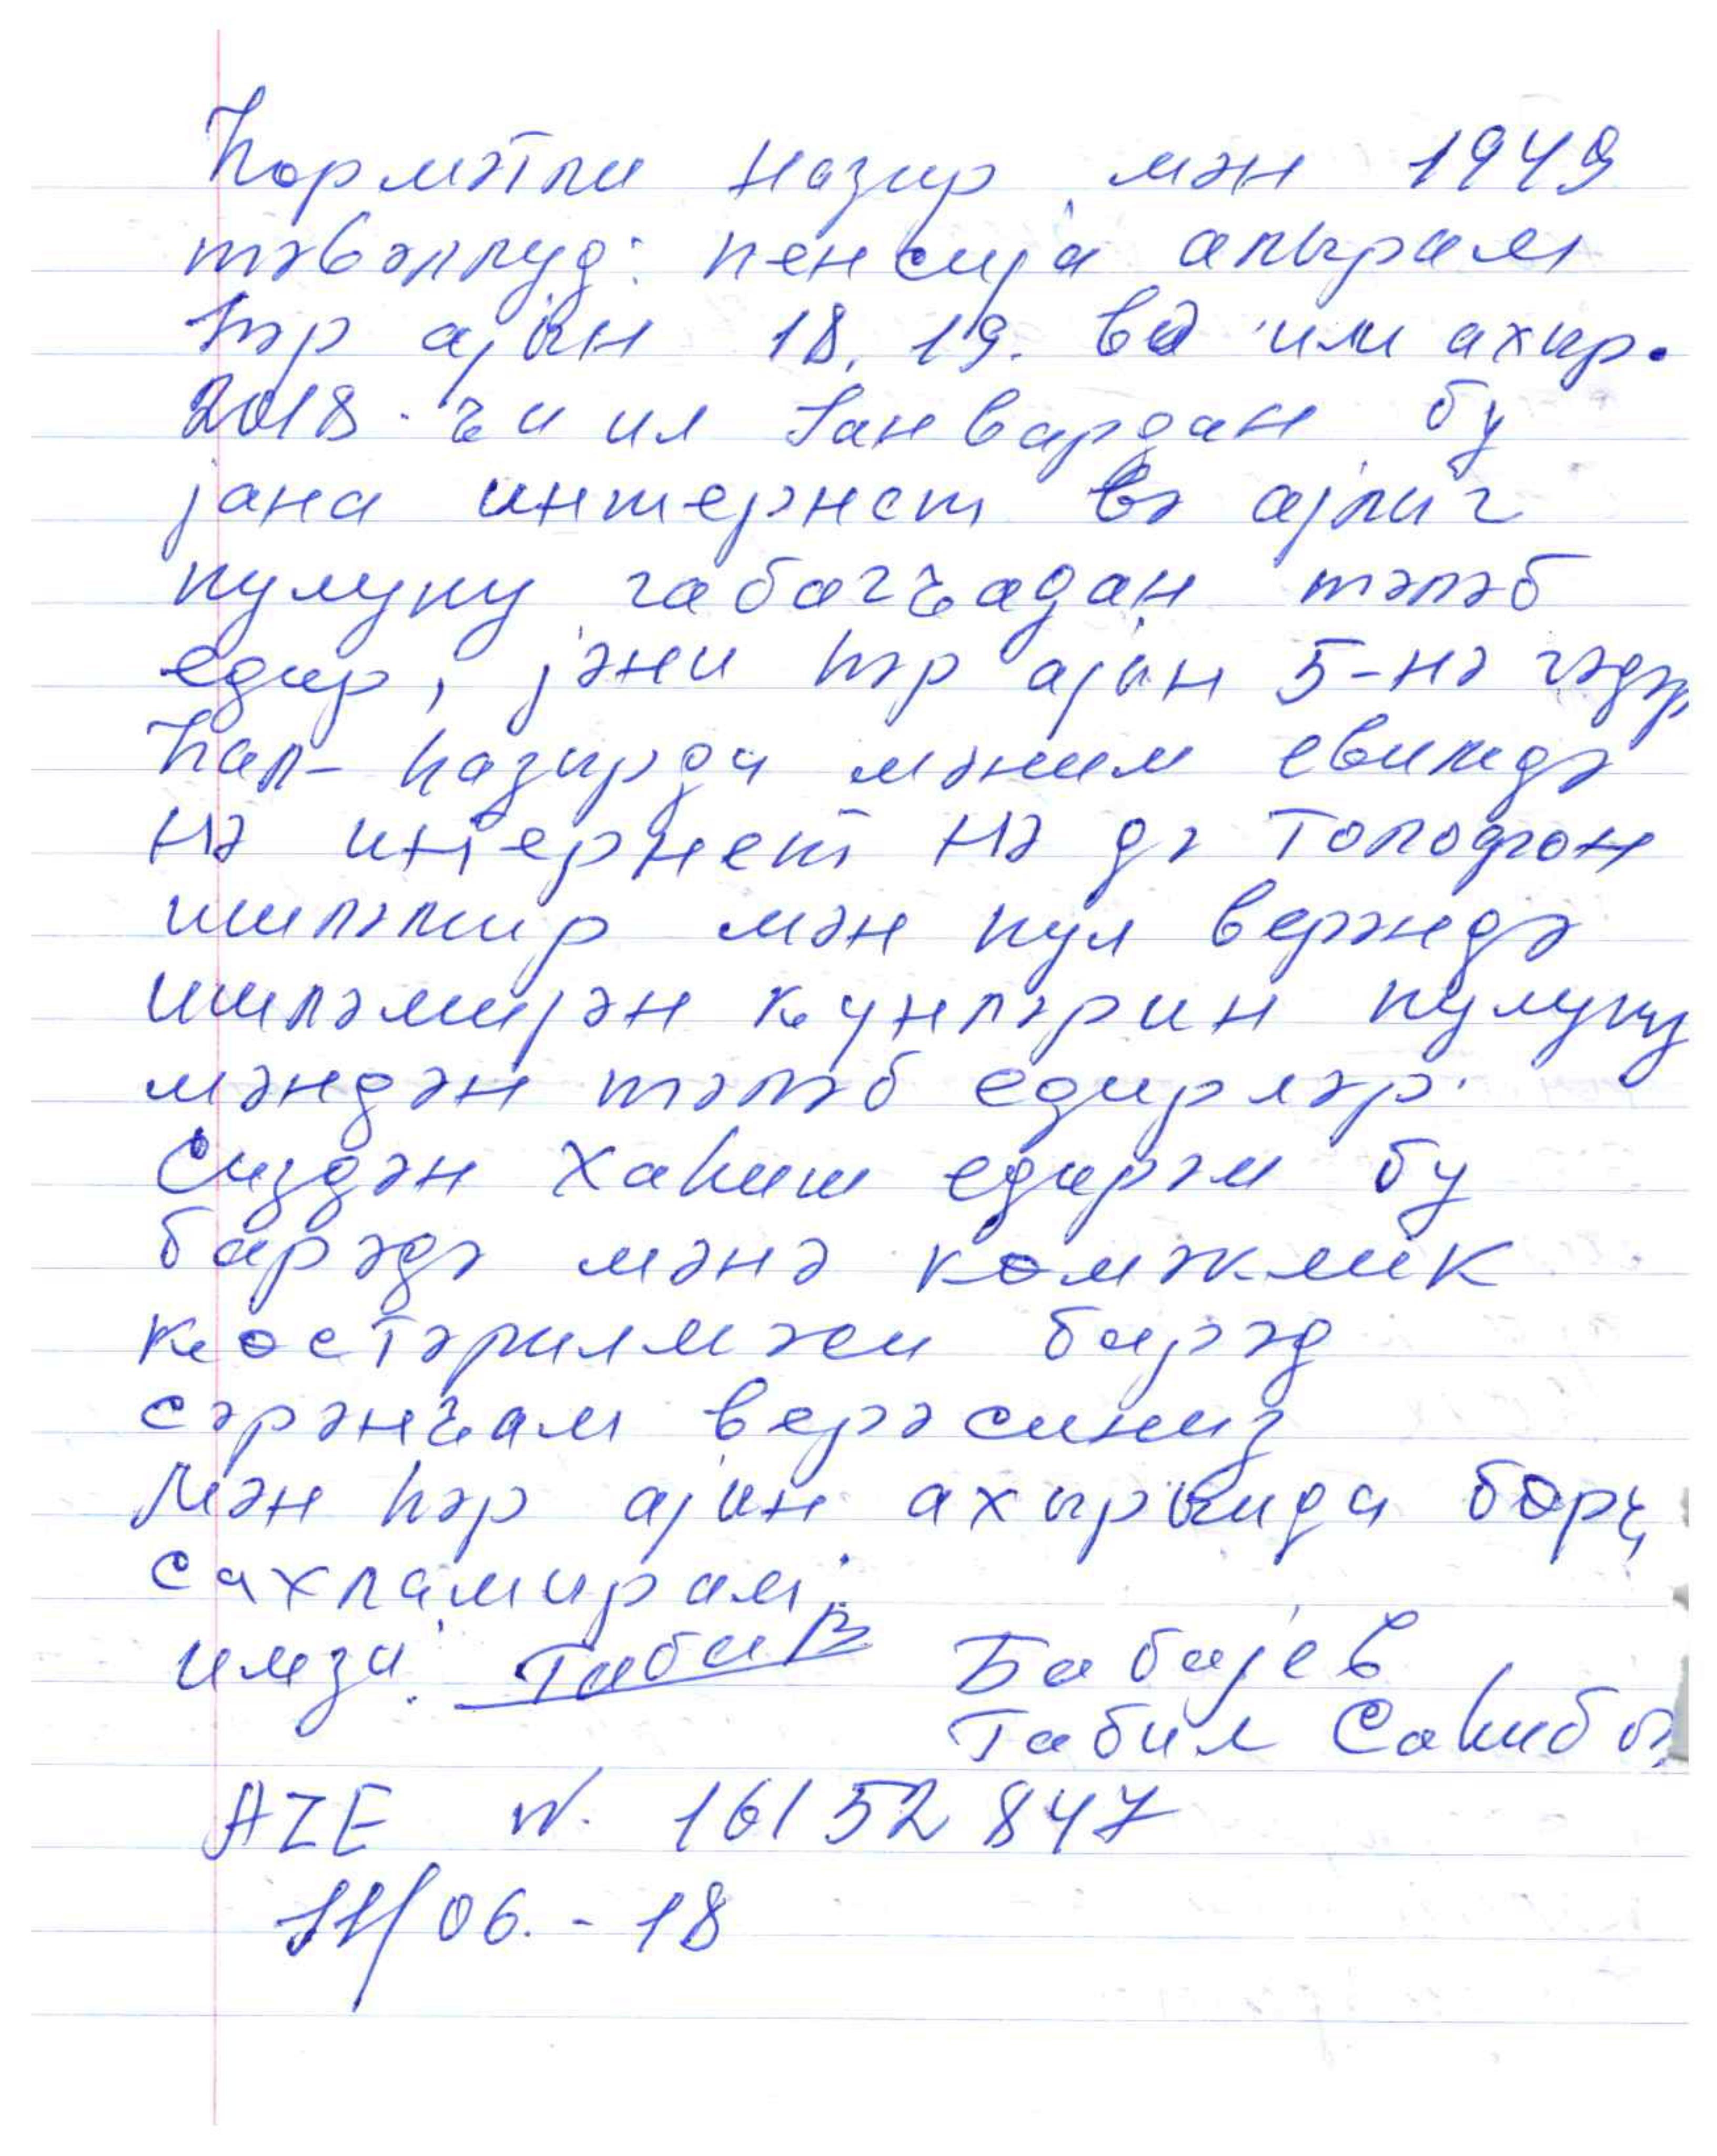 Һөрмәтли назир мән 1949
тәвәллүд: пенсија алырам
һәр ајын 18, 19. вә или ахир.
2018-ҹи ил Јанвардан бу
јана интернет вә ајлиг
пулуну габагҹадан тәләб
едир, јәни һәр ајын 5-нә гәдәр
Һал-һазирда мәним евимдә
нә интернет нә дә Толофон
ишләмир мән пул верәндә
ишләмијән ҝүнләрин пулуну
мәндән тәләб едирләр.
Сиздән хаһиш едирәм бу
барәдә мәнә көмәклик
ҝөстәрилмәси барәд
сәрәнҹам верәсиниз
Мән һәр ајин ахырында борҹ
сахламирам.
имза. Бабајев
Табил Саһиб о.
AZE N. 16152847
11/06.-18